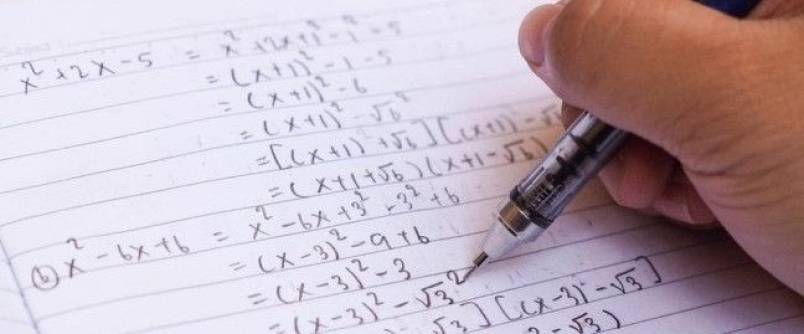 x² + 2x - 5 = x² + 2x + 1 - 1 - 5
= (x+1)² - 1 - 5
= (x+1)² - 6
= (x+1)² - √6²
= [(x+1) + √6] [(x+1) - √
= (x+1+√6)(x+1-√6)
(b) x² - 6x + 6 = x² - 6x + 3² - 3² + 6
= (x-3)² - 9 + 6
= (x-3)² - 3
= (x-3)² - √3²
√3] [(x-3) - √3]
- √3)